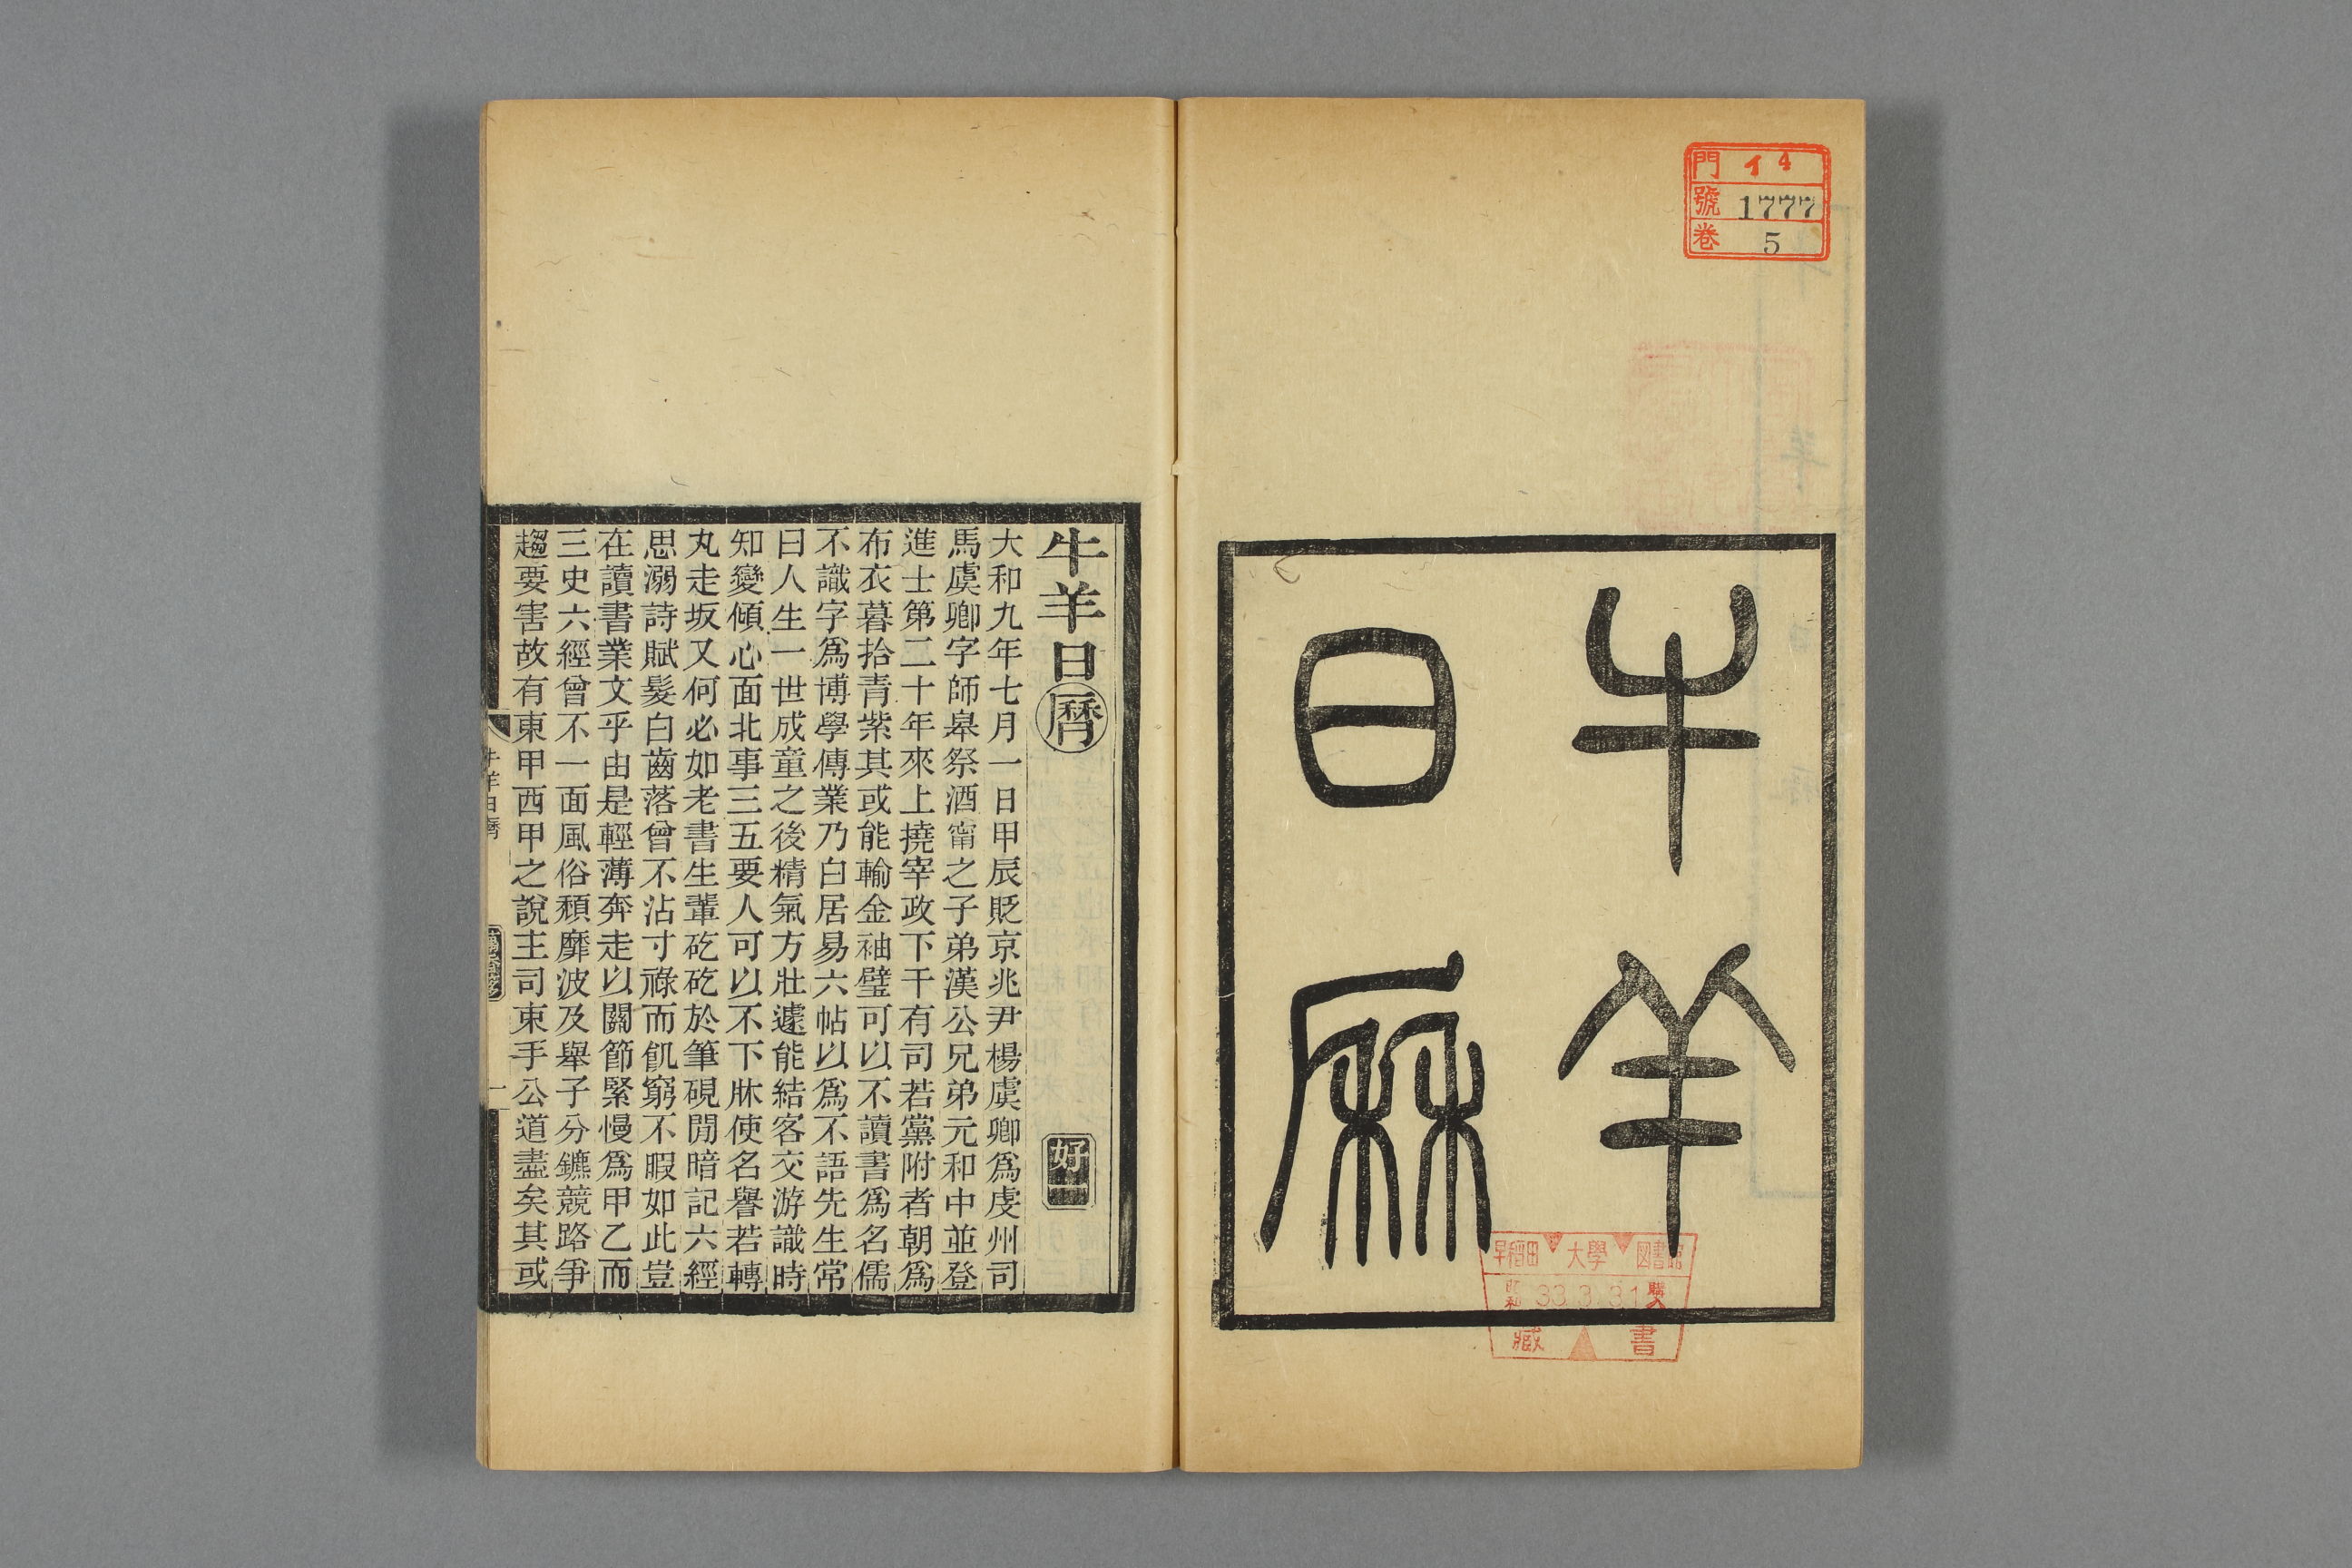 門 イ4
號 1777
卷 5
牛羊
日厤
早稻田大學圖書館
昭和 33.3.31 購入
藏書
牛羊日曆
好一
大和九年七月一日甲辰貶京兆尹楊虞卿爲虔州司
馬虞卿字師皋祭酒甯之子弟漢公兄弟元和中並登
進士第二十年來上撓宰政下干有司若黨附者朝爲
布衣暮拾青紫其或能輸金袖璧可以不讀書爲名儒
不識字爲博學傳業乃白居易六帖以爲不語先生常
曰人生一世成童之後精氣方壯遽能結客交游識時
知變傾心面北事三五要人可以不下牀使名譽若轉
丸走坂又何必如老書生輩矻矻於筆硯閒暗記六經
思溺詩賦髮白齒落曾不沾寸祿而飢窮不暇如此豈
在讀書業文乎由是輕薄奔走以關節緊慢爲甲乙而
三史六經曾不一面風俗頹靡波及舉子分鑣競路爭
趨要害故有東甲西甲之說主司束手公道盡矣其或
牛羊日曆
一